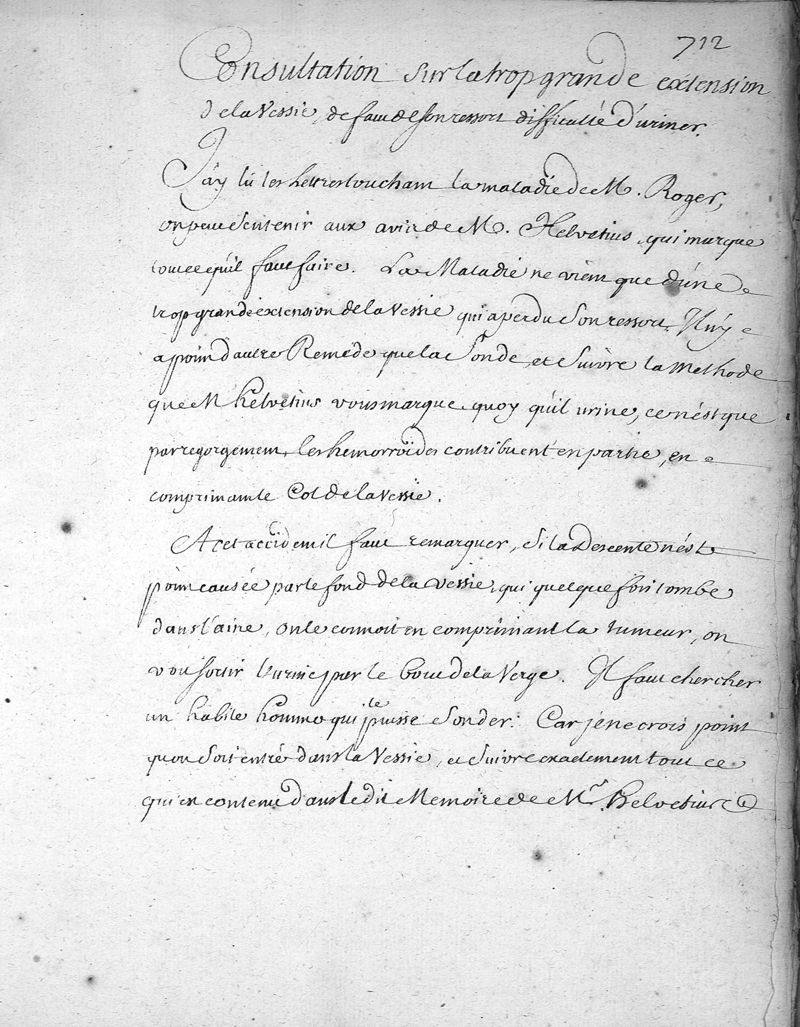 712
Consultation sur la trop grande extension
de la Vessie, defaut de son ressort difficulté d'uriner.
J'ay lû les Lettres touchant la maladie de M. Roger,
on peut s'en tenir aux avis de M. Helvetius, qui marque
tout ce qu'il faut faire. La Maladie ne vient que d'une
trop grande extension de la Vessie qui a perdu son ressort. Il n'y
a point d'autre Remede que la Sonde, et suivre la Methode
que M helvetius vous marque quoy qu'il urine, ce n'est que
par regorgement, les hemorroïdes contribuent en partie, en
comprimant le Col de la Vessie.
A cet accident il faut remarquer, si la Descente n'est
point causée par le fond de la vessie, qui quelque fois tombe
dans l'aine, on le connoit en comprimant la tumeur, on
voit sortir l'urine par le bout de la Verge. Il faut chercher
un habile homme qui le puisse sonder. Car je ne crois point
qu'on soit entré dans la Vessie, et suivre exactement tout ce
qui est contenu dans le dit Memoire de Mr. Helvetius